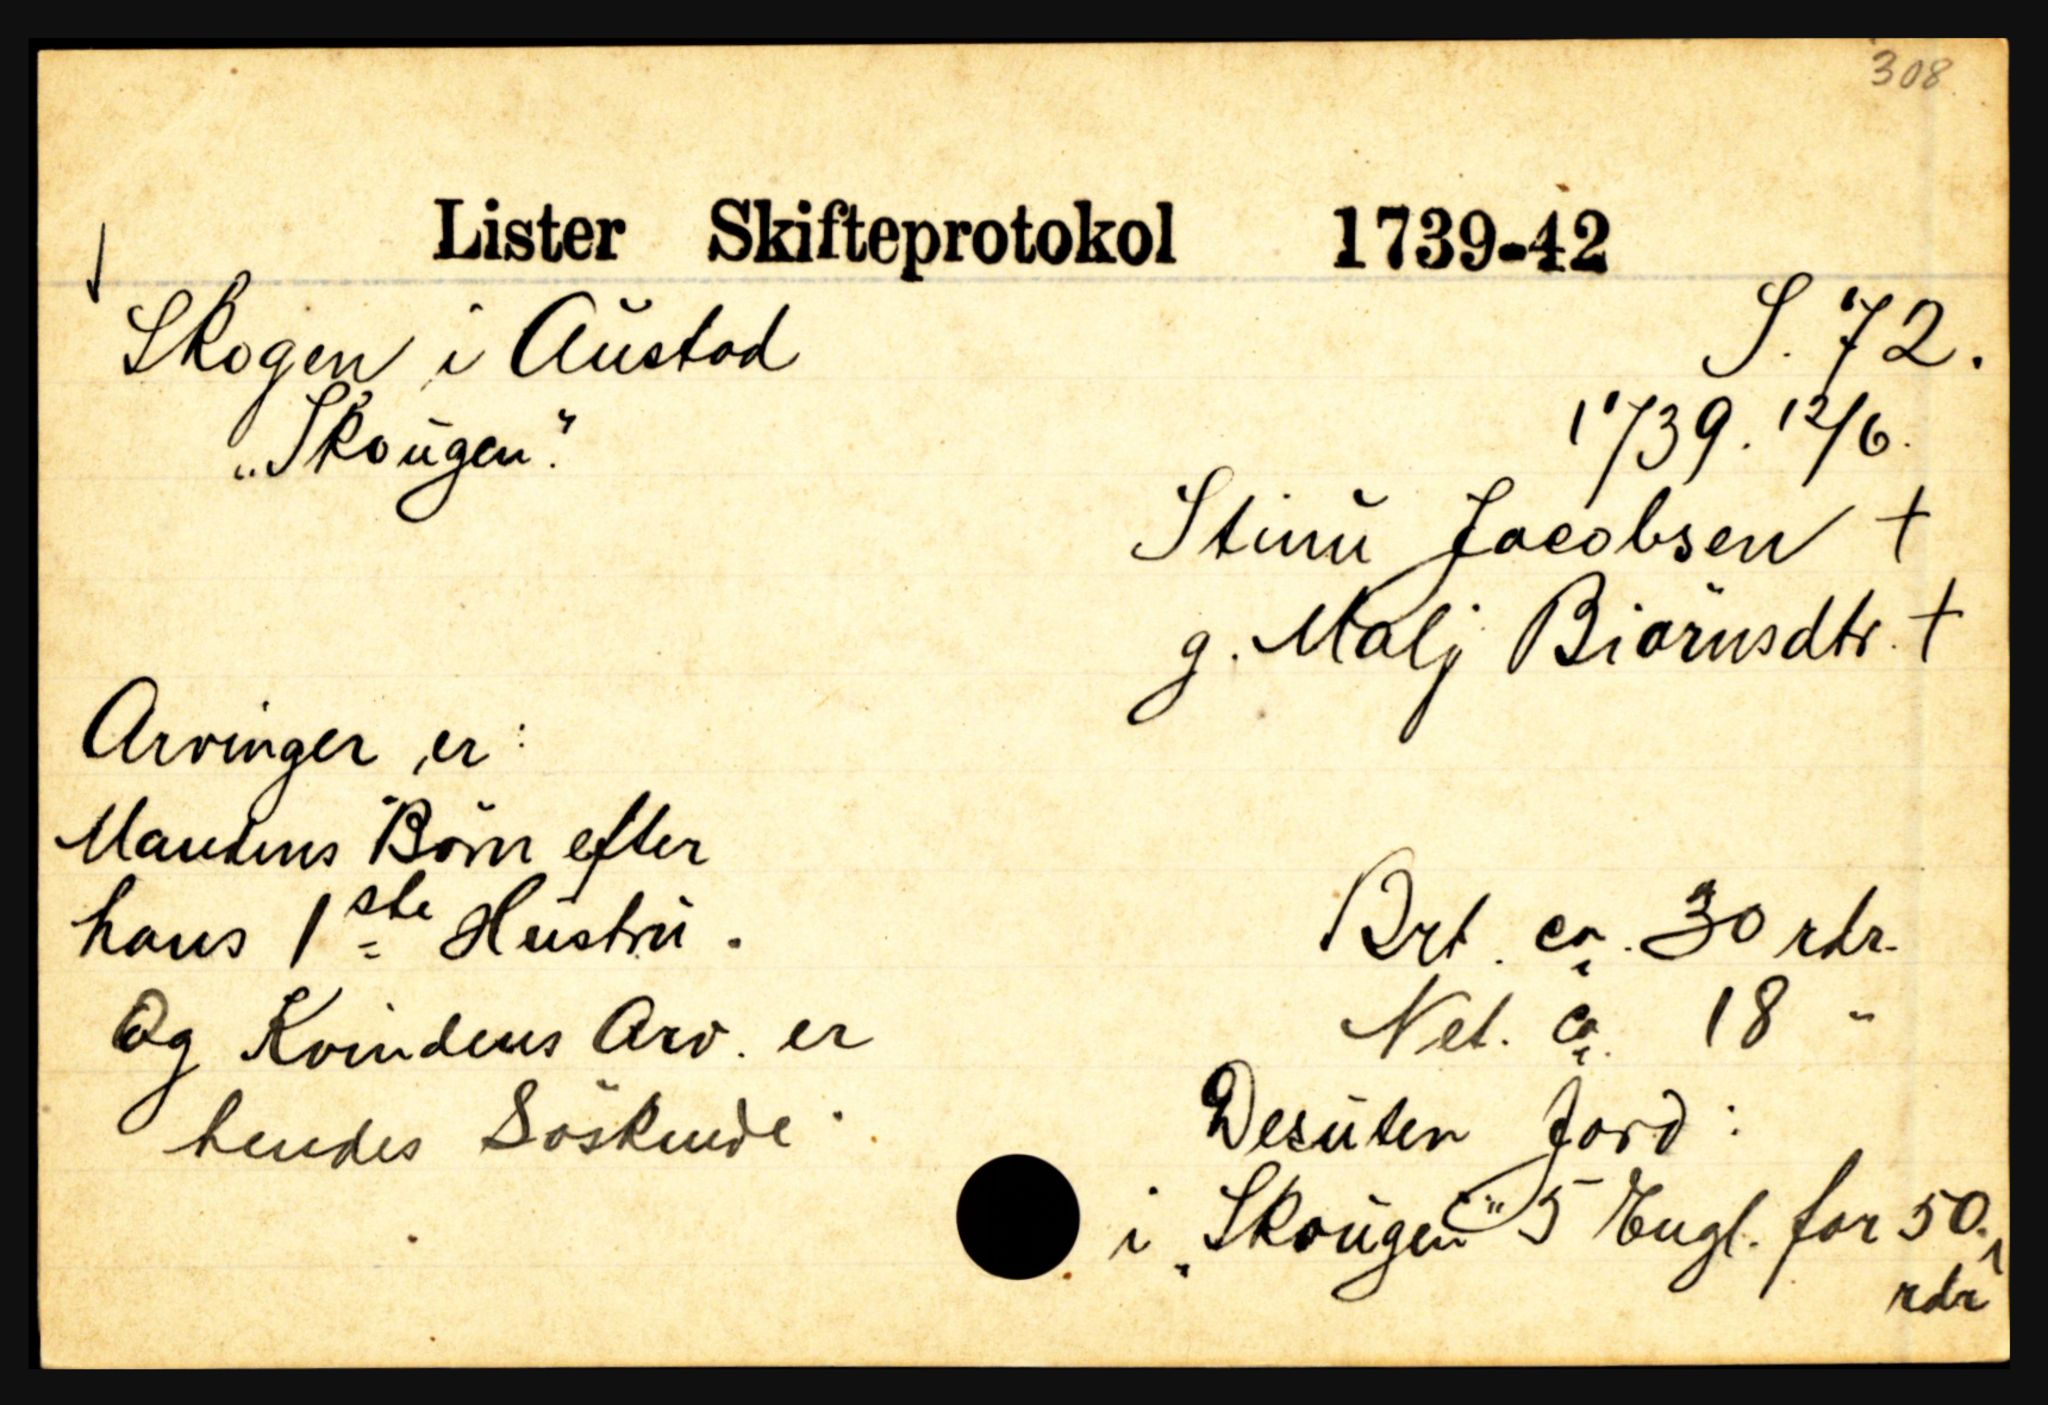 308
Lister Skifteprotokol 1739-42
Skogen i Austad
S. 72.
„Skougen".
1739. 12/6.
Stinu Jacobsen †
g. Malj Biörnsdtr. †
Arvinger er:
Mandens Börn efter
hans 1ste Hustru.
Og Kvindens Arv. er
hendes Söskende.
Brt. ca. 30 rdr.
Net. ca. 18 "
Desuten Jord:
i „Skougen" 5 Engl. for 50.
rdr